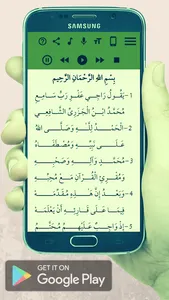 SAMSUNG
بِسْمِ اللهِ الرَّحْمَانِ الرَّحِيمِ
1- يَقُولُ رَاجِي عَفْوِ رَبٍّ سَامِعِ
مُحَمَّدُ ابْنُ الْجَزَرِيِّ الشَّافِعِي
2- الْحَمْدُ لِلَّهِ وَصَلَّى اللهُ
عَلَى نَبِيِّهِ وَمُصْطَفَاهُ
3- مُحَمَّدٍ وَآلِهِ وَصَحْبِهِ
وَمُقْرِئِ الْقُرْآنِ مَعْ مُحِبِّهِ
4- وَبَعْدُ إِنَّ هَذِهِ مُقَدِّمَهْ
فِيمَا عَلَى قَارِئِهِ أَنْ يَعْلَمَهْ
5- إِذْ وَاجِبٌ عَلَيْهِمُ مُحَتَّمُ
GET IT ON
Google Play